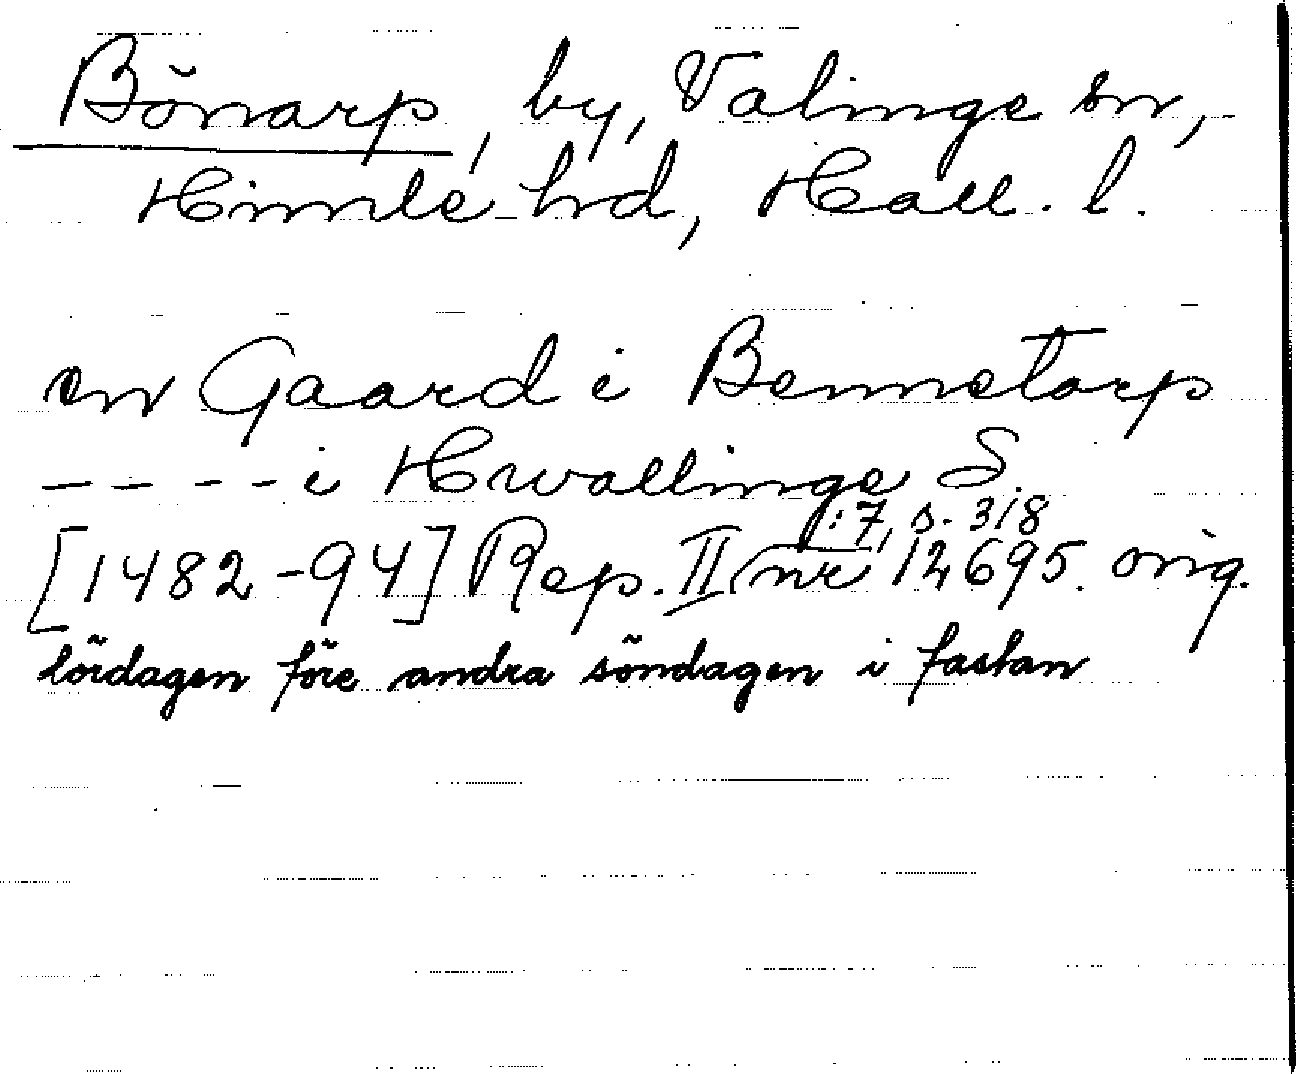 Bönarp, by, Valinge sn,
Himle hd, Hall. l.
en Gaard i Bennetorp
---- i Hwallinge S.
:7, s. 318
[1482-94] Rep. II nr 12695. orig.
lördagen före andra söndagen i fastan